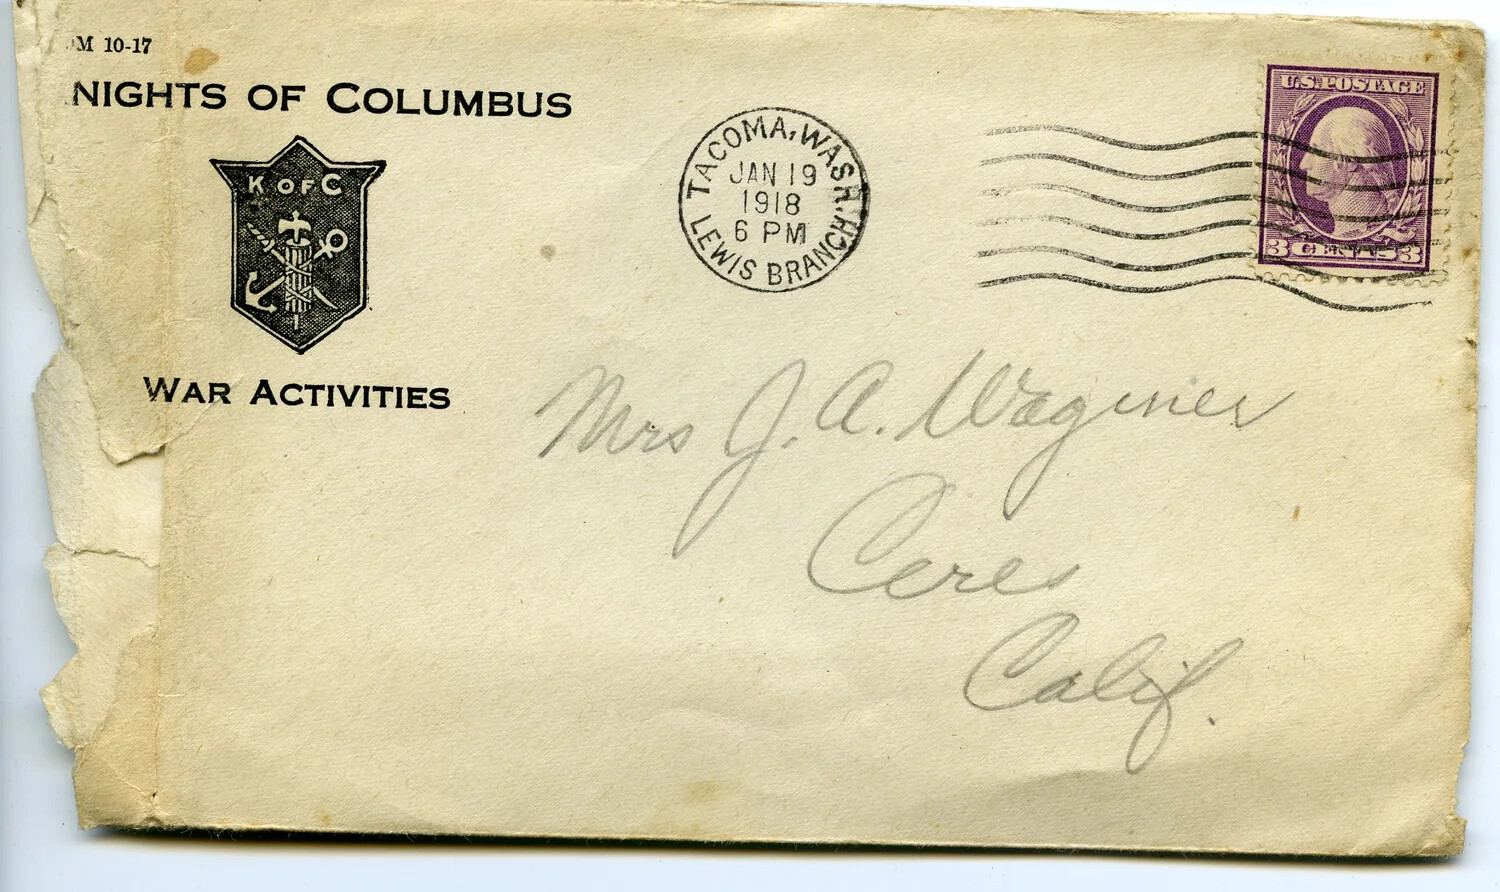 M 10-17
NIGHTS OF COLUMBUS
K OF C
WAR ACTIVITIES
TACOMA, WASH.
JAN 19
1918
6 PM
LEWIS BRANCH
U.S. POSTAGE
3 CENTS 3
Mrs J. A. Waginer
Ceres
Calif.